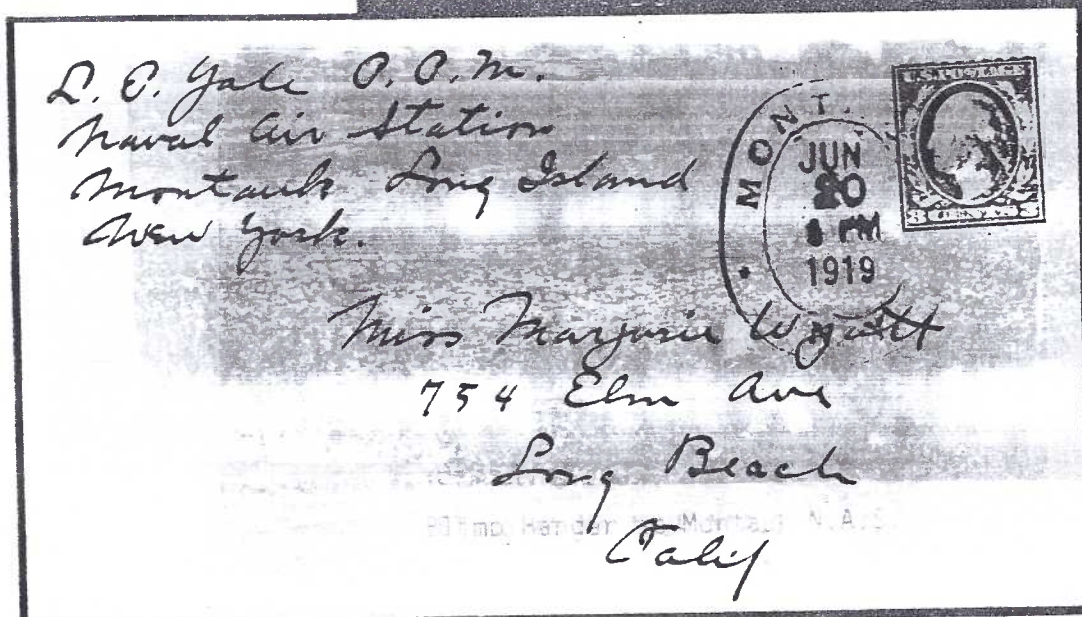 L. E. Yale P. P. M.
Naval Air Station
Montauk Long Island
New York.
MONT.
JUN
20
PM
1919
U.S. POSTAGE
3 CENTS 3
Miss Marjorie Wyatt
754 Elm Ave
Long Beach
Blimp Hangar Montauk N.A.S.
Calif